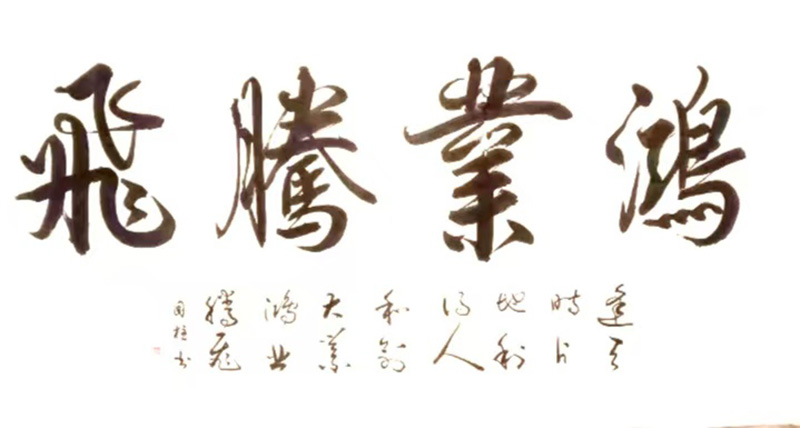 鴻業騰飛
逢天
時占
地利
得人
和創
大業
鴻业
騰飛
国 书